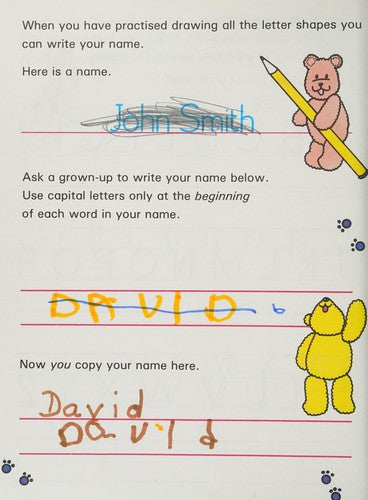 When you have practised drawing all the letter shapes you
can write your name.
Here is a name.
John Smith
Ask a grown-up to write your name below.
Use capital letters only at the beginning
of each word in your name.
DAVID
Now you copy your name here.
David
David